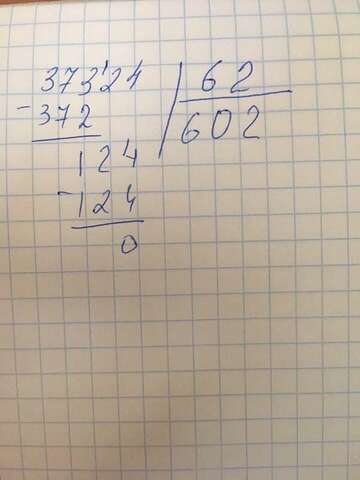 37324 62
-372 602
124
-124
0